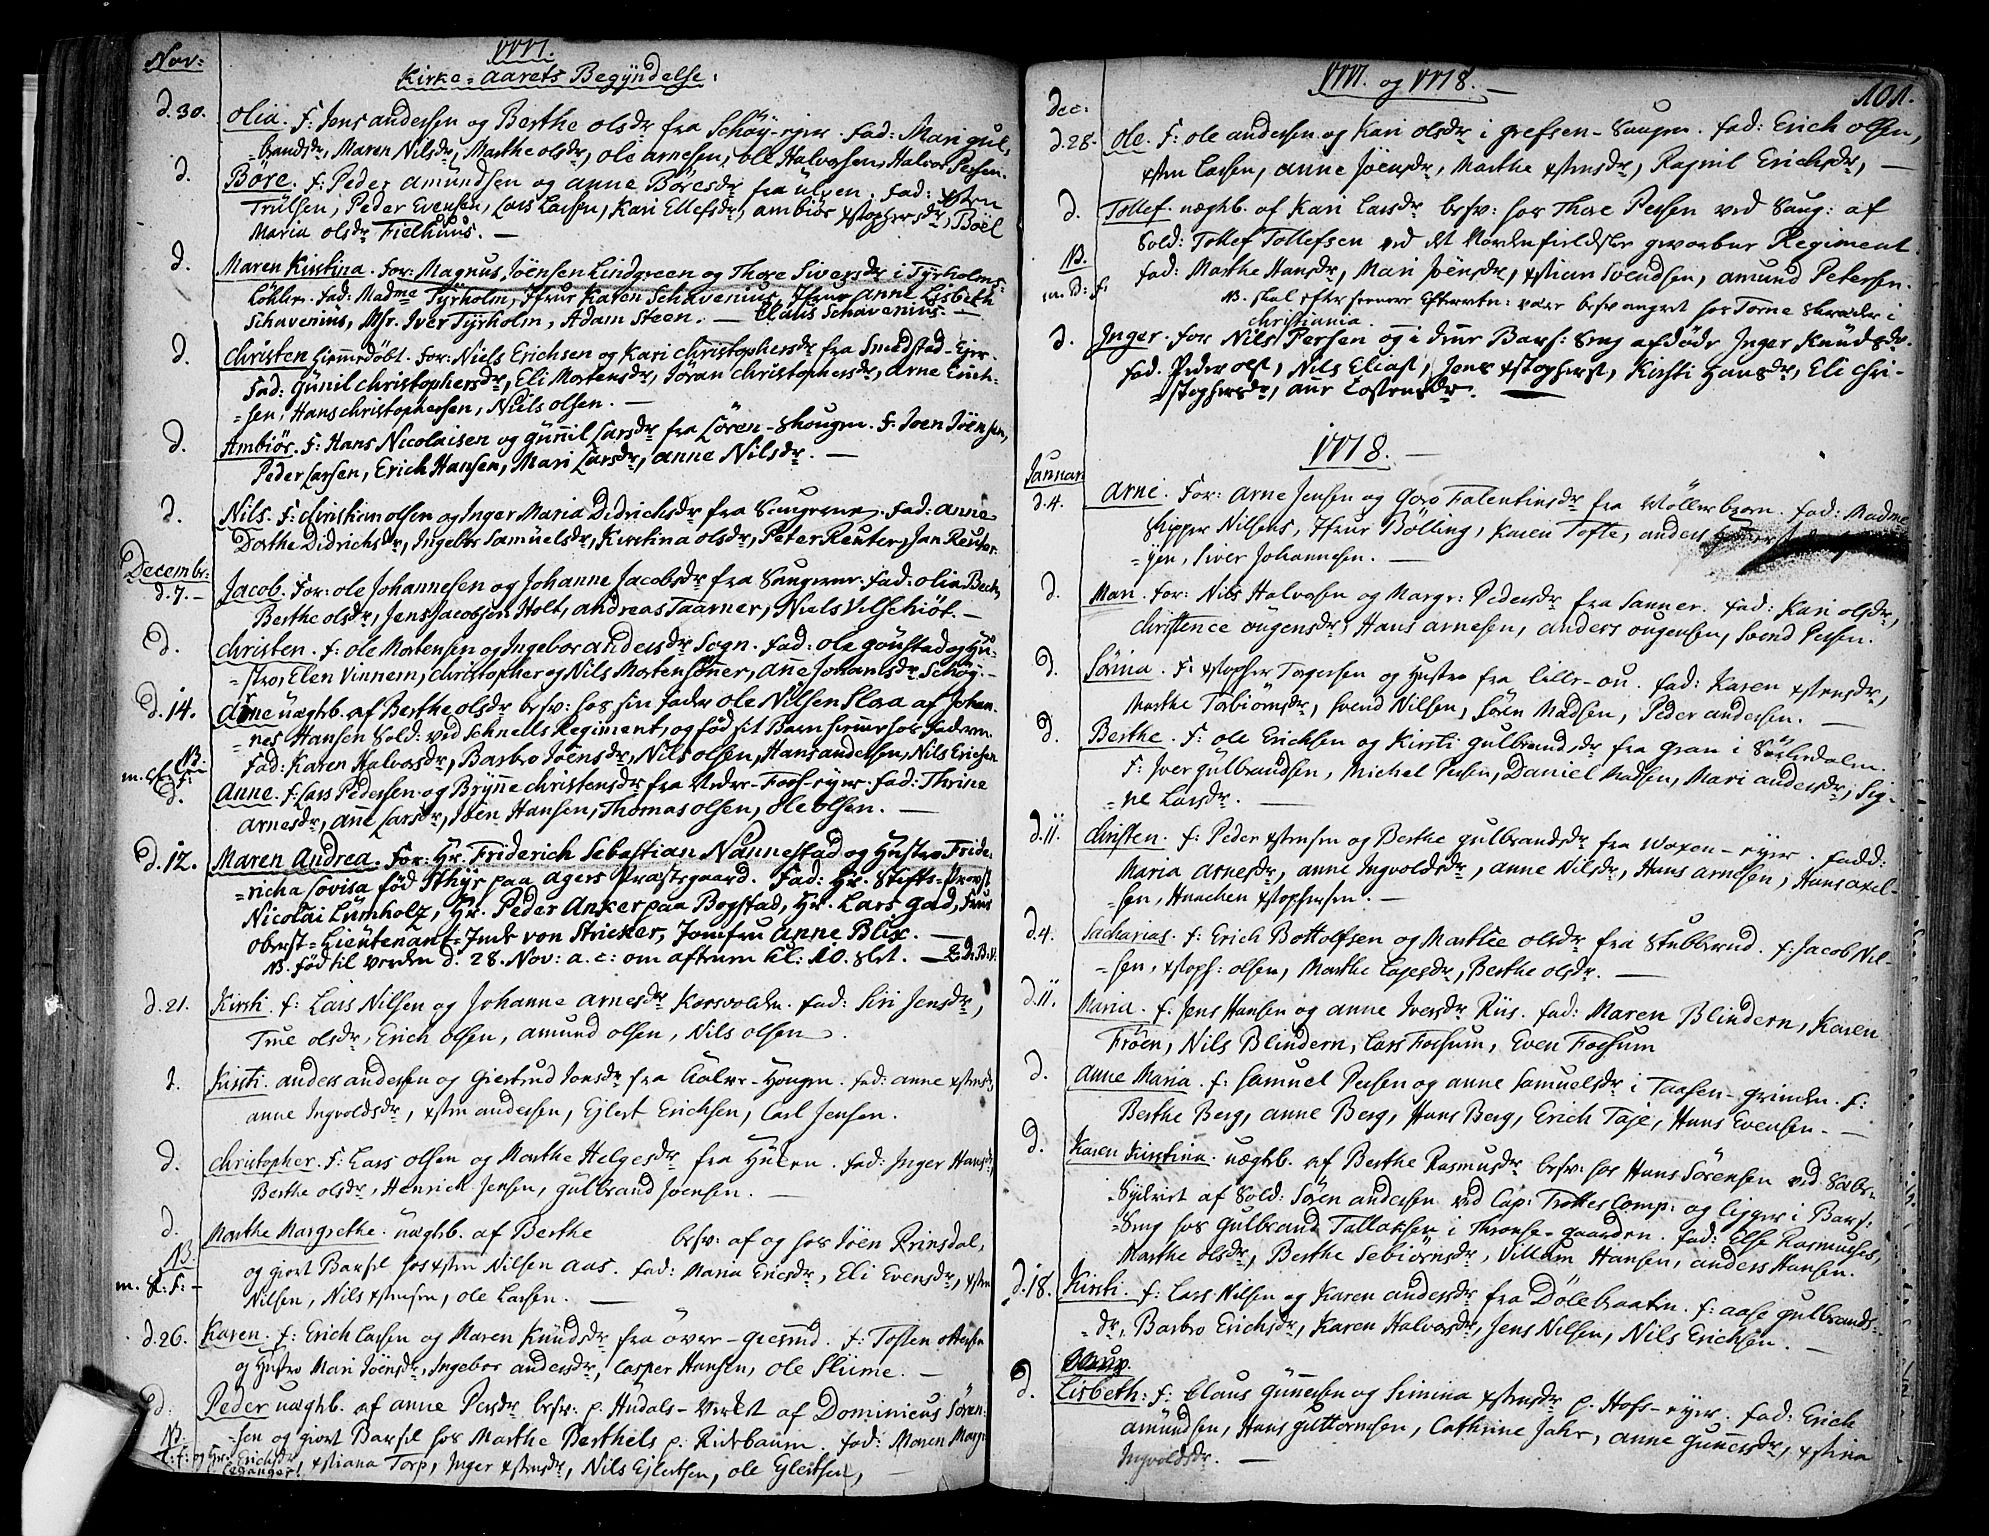 Nov:
1777.
Kirke-Aarets Begyndelse:
d.30. Olia. F: Jens Andersen og Berthe Olsdr fra Schöy-ejer. Fad: Mari Gul-
brandsdr, Maren Nilsdr, Marthe Olsdr, Ole Arnesen, Ole Halvorsen, Halvor Persen.
d. Böre. F: Peder Amundsen og Anne Böresdr fra Ulven. Fad: Xsten
Trulsen, Peder Evensen, Lars Larsen, Kari Ellefsdr, Ambiör Xstophersdr, Böel
Maria Olsdr Fielhuus. —
d. Maren Kirstina. For: Magnus Jöensen Lindgreen og Thore Siversdr i Tyrholms-
Löhken. Fad: Madme Tyrholm, Jfrur Karen Schavenius, Jfrur Anne Lisbeth
Schavenius, Msr. Iver Tyrholm, Adam Steen. — Claus Schavenius. —
d. Christen hiemmedöbt. For: Niels Erichsen og Kari Christophersdr fra Smedstad-Ejer.
Fad: Gunil Christophersdr, Eli Mortensdr, Jöran Christophersdr, Arne Erich-
=sen, Hans Christophersen, Niels Olsen. —
d. Ambiör. F: Hans Nicolaisen og Gunnil Larsdr fra Lören-Skougen. F: Joen Jöensen,
Peder Larsen, Erich Hansen, Mari Larsdr, Anne Nilsdr. —
d. Nils. F: Christian Olsen og Inger Maria Didrichsdr fra Saugerne. Fad: Anne
Dorthe Didrichsdr, Ingebor Samuelsdr, Kirstina Olsdr, Peter Reuter, Jan Reuter.
Decembr:
d.7.- Jacob. For: Ole Johannesen og Johanne Jacobsdr fra Saugerne. Fad: Olia Beck,
Berthe Olsdr, Jens Jacobson Holt, Andreas Taarner, Niels Vilschiöt. —
d. Christen. F: Ole Mortensen og Ingebor Andersdr Sogn. Fad: Ole Goustad og Hu-
=stro, Elen Vinnem, Christopher og Nils Mortensönner, Anne Johansdr Schöy. —
d.14. Arne uægtb. af Berthe Olsdr besv: hos sin Fader Ole Nilsen Slora af Johan-
=nes Hansen Sold: ved Schnells Regiment, og föd sit Barn hiemme hos Faderen.
NB. Fad: Karen Halvorsdr, Barbro Jöensdr, Nils Olsen, Hans Andersen, Nils Erichsen
d. Anne. F: Lars Pedersen og Brynne Christensdr fra Nedre-Foss-ejer. Fad: Thrine
Arnesdr, Anne Larsdr, Jöen Hansen, Thomas Olsen, Ole Olsen. —
d.12. Maren Andrea. For: Hr. Friderich Sebastian Nannestad og Hustro Fride-
=richa Lovisa föd Thyr paa Agers Præstegaard. Fad: Hr. Stifts-Provst
Nicolai Lumholz, Hr. Peder Anker paa Bogstad, Hr. Lars Gad, Frue
Oberst-Lieutenant-Inde von Stricker, Jomfru Anne Blix. —
NB. föd til verden d. 28. Nov: a. c: om aftenen kl: 10. slet. —
d.21. Kirsti. F: Lars Nilsen og Johanne Arnesdr Korsvolden. Fad: Siri Jensdr,
True Olsdr, Erich Olsen, Amund Olsen, Nils Olsen.
d. Kirsti. Anders Andersen og Giertrud Jonsdr fra Aaker-Hougen. Fad: Anne Xstensdr,
Anne Ingvoldsdr, Xsten Andersen, Ejlert Erichsen, Carl Jensen.
d. Christopher. F: Lars Olsen og Marthe Helgesdr fra Hulen. Fad: Inger Hansdr,
Berthe Olsdr, Henrich Jensen, Gulbrand Joensen. —
d. Marthe Margrethe. uægtb. af Berthe besv: af og hos Jöen Rinsdal,
NB. og giort Barsel hos Xsten Nilsen Aas. Fad: Maria Ericsdr, Eli Evensdr, Xsten
Nilsen, Nils Xstensen, Ole Larsen. —
d.26. Karen. F: Erich Larsen og Maren Knudsdr fra Över-Grefsrud. F: Tosten Ottersen
og Hustro Mari Jöensdr, Ingebor Andersdr, Casper Hansen, Ole Slume. —
d. Peder uægtb. af Anne Persdr besv: p. Hudals-Verket af Dominicus Sören-
NB. =sen og giort Barsel hos Marthe Berthels p. Ridebaun. Fad: Maren Margr
Erichsdr, Xstiana Torp, Inger Xstensdr, Nils Ejlertsen, Ole Ejlertsen,
1777. og 1778. —
101.
Dec:
d.28. Ole. F: Ole Andersen og Kari Olsdr i Grefsen-Saugen. Fad: Erich Olsen,
Xsten Larsen, Anne Jöensdr, Marthe Xstensdr, Ragnil Erichsdr, —
d. Tollef uægtb. af Kari Larsdr besv: hos Thore Persen ved Saug: af
Sold: Tollef Tollefsen ved det Nordenfieldske gevorbne Regiment.
NB. Fad: Marthe Hansdr, Mari Jöensdr, Xstian Svendsen, Amund Petersen.
NB. skal efter senere Efterretn: være besvangret hos Torne Skræder i
Christiania.
d. Inger. For Nils Persen og i denne Bars: Seng afdöde Inger Knudsdr.
Fad. Peder Ols:, Nils Elias:, Jens Xstophers:, Kirsti Hansdr, Eli Chri-
stophersdr, Anne Tostensdr. —
1778. —
Januari
d.4. Arne. For: Arne Jensen og Goro Falentinsdr fra Möllerbyen. Fad: Madme
Skipper Nilsens, Jfrur Bölling, Karen Tofte, Anders
=yen, Siver Johannesen. —
d. Mari. For: Nils Halvorsen og Margr: Pedersdr fra Sanner. Fad: Kari Olsdr,
Christence Ougensdr, Hans Arnesen, Anders Ougensen, Svend Persen.
d. Sörina. F: Xstopher Torgersen og Hustro fra Lille-Ou. Fad: Karen Xstensdr,
Marthe Torbiörnsdr, Svend Nilsen, Sören Madsen, Peder Andersen. —
d. Berthe. F: Ole Erichsen og Kirsti Gulbrandsdr fra Gran i Sörkedalen.
F: Iver Gulbrandsen, Michel Persen, Daniel Madsen, Mari Andersdr, Sig-
=ne Larsdr. —
d.11. Christen. F: Peder Xstensen og Berthe Gulbrandsdr fra Woxen-ejer. Fadd:
Maria Arnesdr, Anne Ingvoldsdr, Anne Nilsdr, Hans Arnesen, Hans Axel-
=sen, Haachen Xstophersen. —
d.4. Sacharias. F: Erich Bottolfsen og Marthe Olsdr fra Stubberud. F: Jacob Nil-
=sen, Xstoph: Olsen, Marthe Lagesdr, Berthe Olsdr. —
d.11. Maria. F. Jens Hansen og Anne Iversdr Riis. Fad: Maren Blindern, Karen
Fröen, Nils Blindern, Lars Fossum, Even Fossum
d. Anne Maria. F: Samuel Persen og Anne Samuelsdr i Taasen-grinden. F:
Berthe Berg, Anne Berg, Hans Berg, Erich Taje, Hans Evensen. —
d. Karen Kirstina. uægtb. af Berthe Rasmusdr besv: hos Hans Sörensen ved Sæbe-
Syderiet af Sold: Sören Andersen ved Cap: Trottes Comp: og ligger i Bars:
=Seng hos Gulbrand Tallaksen i Thronse-gaarden. Fad: Else Rasmuses,
Marthe Olsdr, Berthe Sebiörnsdr, Villum Hansen, Anders Hansen.
d.18. Kirsti. F: Lars Nilsen og Karen Andersdr fra Dölebraaten. F: Aase Gulbrands-
=dr, Barbro Erichsdr, Karen Halvorsdr, Jens Nilsen, Nils Erichsen. —
d. Lisbeth: F: Claus Gunersen og Simina Xstensdr p. Hofs-ejer. Fad: Erich
Amundsen, Hans Guttormsen, Cathrine Jahr, Anne Gunersdr, Xstina
Ingvoldsdr. —